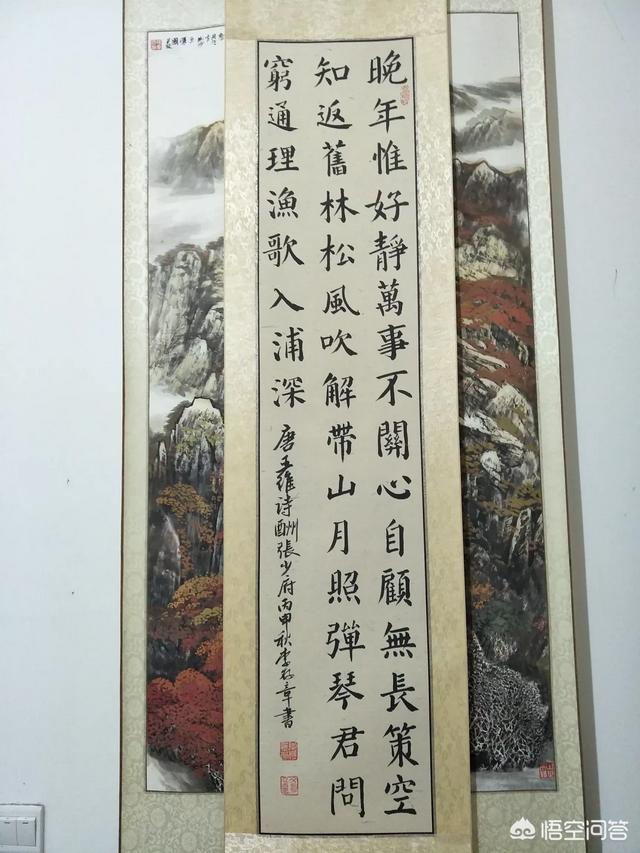 晚年惟好靜萬事不關心自顧無長策空
知返舊林松風吹解帶山月照彈琴君問
窮通理漁歌入浦深
唐王維詩酬張少府丙申秋李
章書
悟空问答